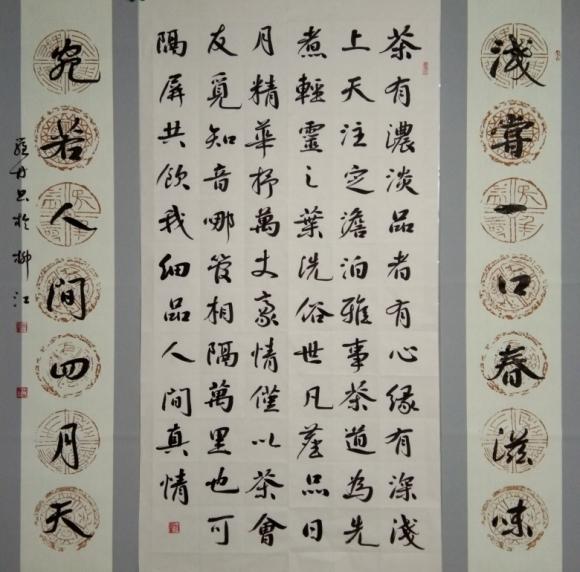 淺嘗一口春滋味
茶有濃淡品者有心緣有深淺
上天注定澹泊雅事茶道為先
煮輕靈之葉洗俗世凡塵品日
月精華抒萬丈豪情僅以茶會
友覓知音哪管相隔萬里也可
隔屏共飲我細品人間真情
宛若人間四月天
羅丹书於柳江